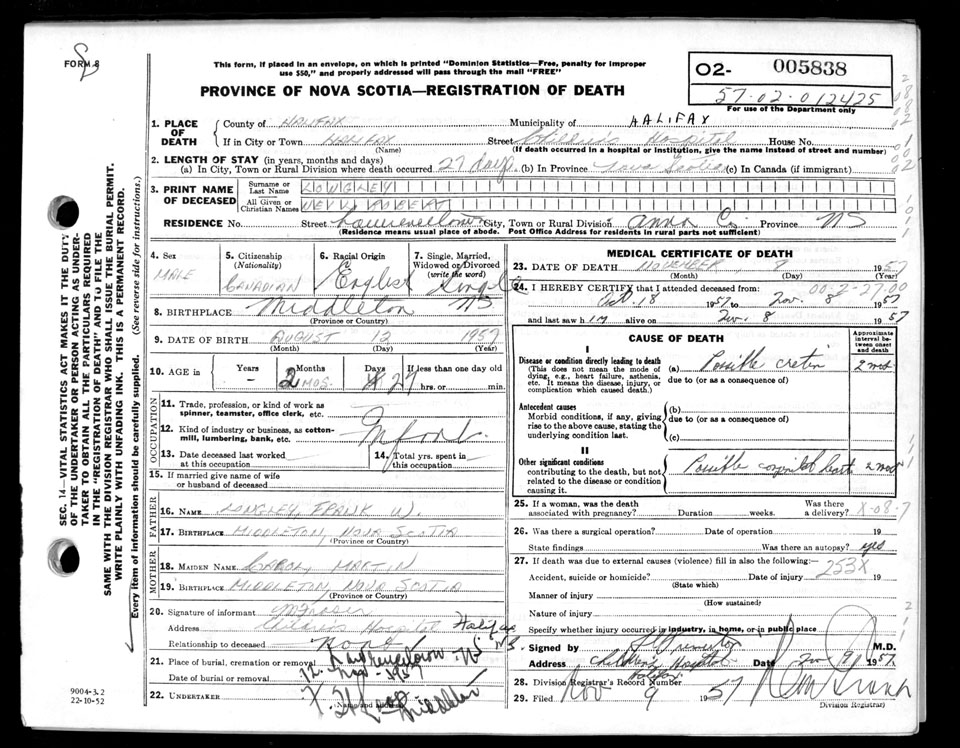 FORM 8
This form, if placed in an envelope, on which is printed "Dominion Statistics—Free, penalty for improper
use $50," and properly addressed will pass through the mail "FREE"
PROVINCE OF NOVA SCOTIA—REGISTRATION OF DEATH
O2- 005838
57-02-012425
For use of the Department only
1. PLACE OF DEATH
County of HALIFAX Municipality of HALIFAX
If in City or Town HALIFAX Street Children's Hospital House No.
(Name) (If death occurred in a hospital or institution, give the name instead of street and number)
2. LENGTH OF STAY (in years, months and days)
(a) In City, Town or Rural Division where death occurred 27 days. (b) In Province Nova Scotia (c) In Canada (if immigrant)
3. PRINT NAME OF DECEASED
Surname or Last Name LONGLEY
All Given or Christian Names ROBERT
RESIDENCE No. Street Lawrencetown City, Town or Rural Division Anna Co. Province NS
(Residence means usual place of abode. Post Office Address for residents in rural parts not sufficient)
4. Sex MALE
5. Citizenship (Nationality) CANADIAN
6. Racial Origin English
7. Single, Married, Widowed or Divorced (write the word) Single
8. BIRTHPLACE Middleton NS
(Province or Country)
9. DATE OF BIRTH AUGUST 12 1957
(Month) (Day) (Year)
10. AGE in Years Months Days If less than one day old
- 2 MOS. 27 hrs. or min.
OCCUPATION
11. Trade, profession, or kind of work as spinner, teamster, office clerk, etc.
12. Kind of industry or business, as cotton-mill, lumbering, bank, etc. Infant.
13. Date deceased last worked at this occupation
14. Total yrs. spent in this occupation
15. If married give name of wife or husband of deceased
FATHER
16. NAME LONGLEY, FRANK W.
17. BIRTHPLACE MIDDLETON, NOVA SCOTIA
(Province or Country)
MOTHER
18. MAIDEN NAME CAROL MARTIN
19. BIRTHPLACE MIDDLETON, NOVA SCOTIA
(Province or Country)
20. Signature of informant M Fraser
Address Children's Hospital Halifax NS
Relationship to deceased None
21. Place of burial, cremation or removal Lawrencetown NS
Date of burial or removal 12 Nov. 1957
22. UNDERTAKER Middleton
(Name and address)
MEDICAL CERTIFICATE OF DEATH
23. DATE OF DEATH NOVEMBER 1957
(Month) (Day)
24. I HEREBY CERTIFY that I attended deceased from: 00-2-27.00
Oct 18 1957 to Nov. 8 1957
and last saw him alive on Nov. 8 1957
CAUSE OF DEATH
Approximate interval between onset and death
I
Disease or condition directly leading to death
(This does not mean the mode of dying, e.g., heart failure, asthenia, etc. It means the disease, injury, or complication which caused death.)
(a) Possible cretin 2 mos
due to (or as a consequence of)
Antecedent causes
Morbid conditions, if any, giving rise to the above cause, stating the underlying condition last.
(b)
due to (or as a consequence of)
(c)
II
Other significant conditions
contributing to the death, but not related to the disease or condition causing it.
Possible congenital heart 2 mos
25. If a woman, was the death associated with pregnancy? Duration weeks. Was there a delivery? X-08-7
26. Was there a surgical operation? Date of operation 19
State findings Was there an autopsy? yes
27. If death was due to external causes (violence) fill in also the following:— 253X
Accident, suicide or homicide? Date of injury 19
(State which)
Manner of injury
(How sustained)
Nature of injury
Specify whether injury occurred in industry, in home, or in public place
Signed by M.D.
Address Children's Hospital Halifax Date Nov 9 1957
28. Division Registrar's Record Number
29. Filed Nov 9 1957
Division Registrar)
SEC. 14—VITAL STATISTICS ACT MAKES IT THE DUTY
OF THE UNDERTAKER OR PERSON ACTING AS UNDER-
TAKER TO OBTAIN ALL THE PARTICULARS REQUIRED
IN THE "REGISTRATION OF DEATH" AND TO FILE THE
SAME WITH THE DIVISION REGISTRAR WHO SHALL ISSUE THE BURIAL PERMIT.
WRITE PLAINLY WITH UNFADING INK. THIS IS A PERMANENT RECORD.
Every item of information should be carefully supplied. (See reverse side for instructions.)
9004-3.2
22-10-52